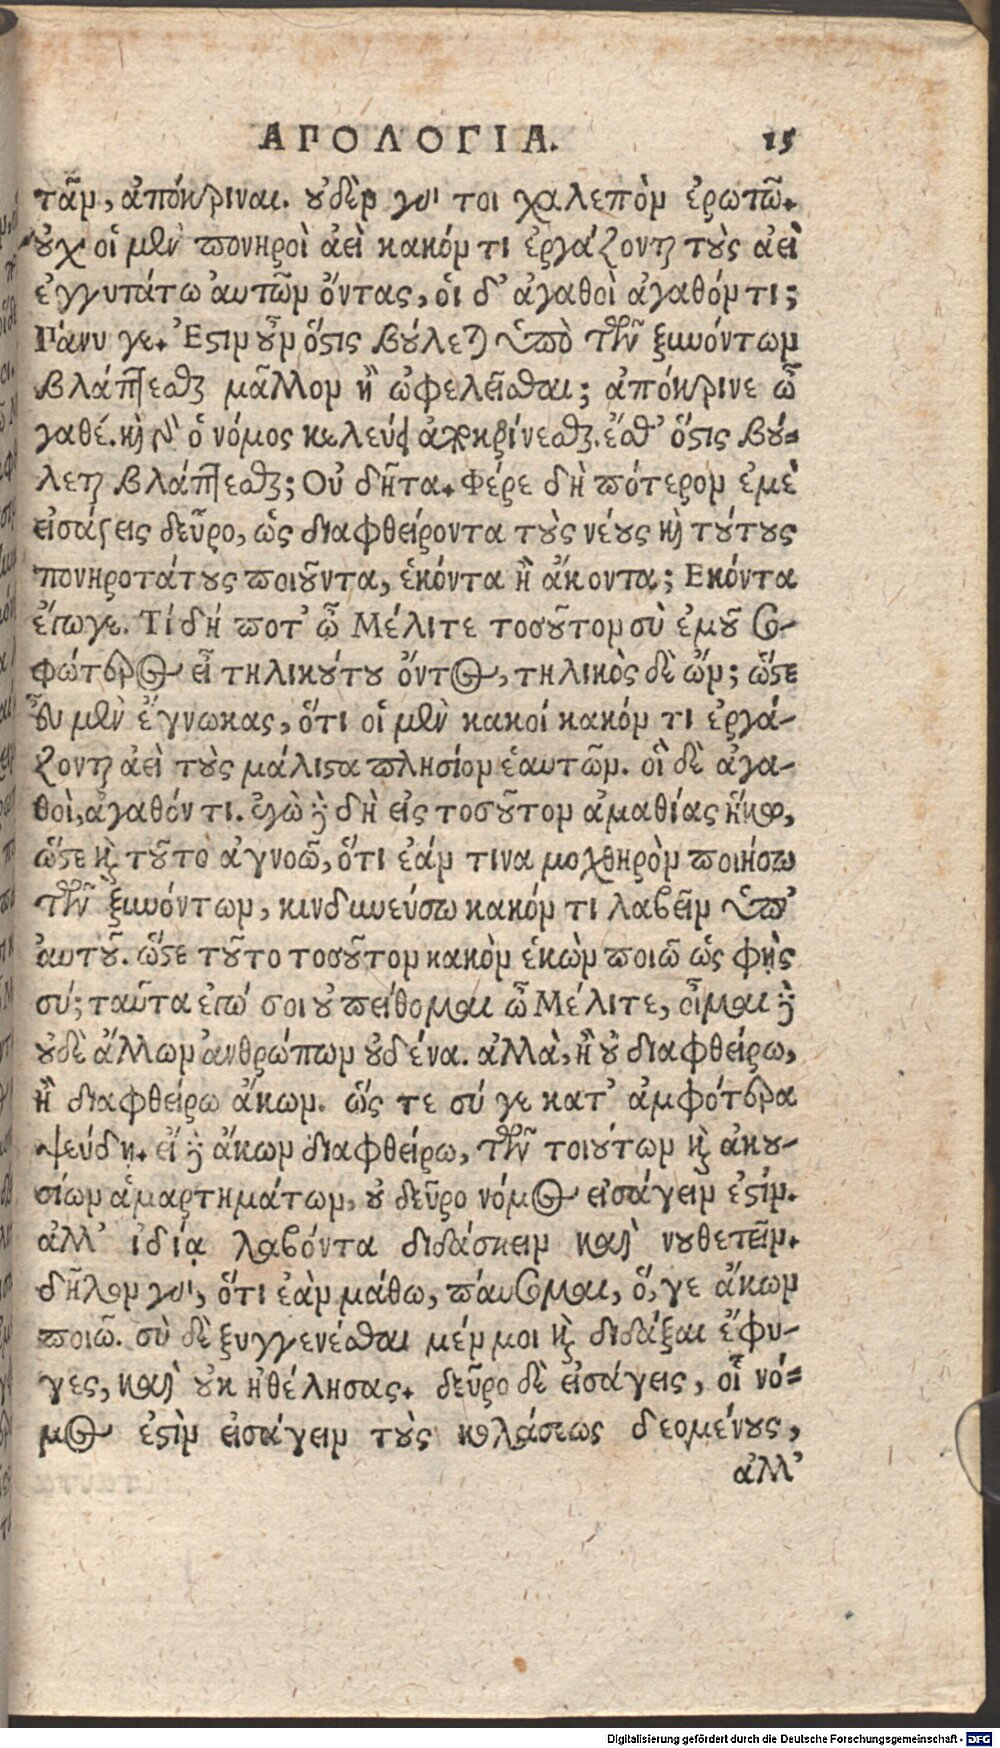 ΑΠΟΛΟΓΙΑ. 15
τᾶν, ἀπόκριναι. οὐδὲν γάρ τοι χαλεπὸν ἐρωτῶ.
οὐχ οἱ μὲν πονηροὶ ἀεὶ κακόν τι ἐργάζονται τοὺς ἀεὶ
ἐγγυτάτω αὐτῶν ὄντας, οἱ δ' ἀγαθοὶ ἀγαθόν τι;
Πάνυ γε. Ἔστιν οὖν ὅστις βούλεται ὑπὸ τῶν ξυνόντων
βλάπτεσθαι μᾶλλον ἢ ὠφελεῖσθαι; ἀπόκρινε ὦ
γαθέ. καὶ γὰρ ὁ νόμος κελεύει ἀποκρίνεσθαι. ἔσθ' ὅστις βού-
λεται βλάπτεσθαι; Οὐ δῆτα. Φέρε δὴ πότερον ἐμὲ
εἰσάγεις δεῦρο, ὡς διαφθείροντα τοὺς νέους καὶ τούτους
πονηροτάτους ποιοῦντα, ἑκόντα ἢ ἄκοντα; Ἑκόντα
ἔγωγε. Τί δή ποτ' ὦ Μέλιτε τοσοῦτον σὺ ἐμοῦ σο-
φώτερος εἶ τηλικούτου ὄντος, τηλικὸς δὲ ὤν; ὥστε
σὺ μὲν ἔγνωκας, ὅτι οἱ μὲν κακοί κακόν τι ἐργά-
ζονται ἀεὶ τοὺς μάλιστα πλησίον ἑαυτῶν. οἱ δὲ ἀγα-
θοὶ, ἀγαθόν τι. ἐγὼ δὲ δὴ εἰς τοσοῦτον ἀμαθίας ἥκω,
ὥστε καὶ τοῦτο ἀγνοῶ, ὅτι ἐάν τινα μοχθηρὸν ποιήσω
τῶν ξυνόντων, κινδυνεύσω κακόν τι λαβεῖν ὑπ'
αὐτοῦ. ὥστε τοῦτο τοσοῦτον κακὸν ἑκὼν ποιῶ ὡς φῂς
σύ; ταῦτα ἐγώ σοι οὐ πείθομαι ὦ Μέλιτε, οἶμαι δὲ
οὐδὲ ἄλλων ἀνθρώπων οὐδένα. ἀλλὰ, ἢ οὐ διαφθείρω,
ἢ διαφθείρω ἄκων. ὥς τε σύ γε κατ' ἀμφότερα
ψεύδῃ. εἰ δὲ ἄκων διαφθείρω, τῶν τοιούτων καὶ ἀκου-
σίων ἁμαρτημάτων, οὐ δεῦρο νόμος εἰσάγειν ἐστίν.
ἀλλ' ἰδίᾳ λαβόντα διδάσκειν καὶ νουθετεῖν.
δῆλον γάρ, ὅτι ἐὰν μάθω, παύσομαι, ὅ,γε ἄκων
ποιῶ. σὺ δὲ ξυγγενέσθαι μέν μοι καὶ διδάξαι ἔφυ-
γες, καὶ οὐκ ἠθέλησας. δεῦρο δὲ εἰσάγεις, οἷ νό-
μος ἐστὶν εἰσάγειν τοὺς κολάσεως δεομένους,
ἀλλ'
Digitalisierung gefördert durch die Deutsche Forschungsgemeinschaft - DFG